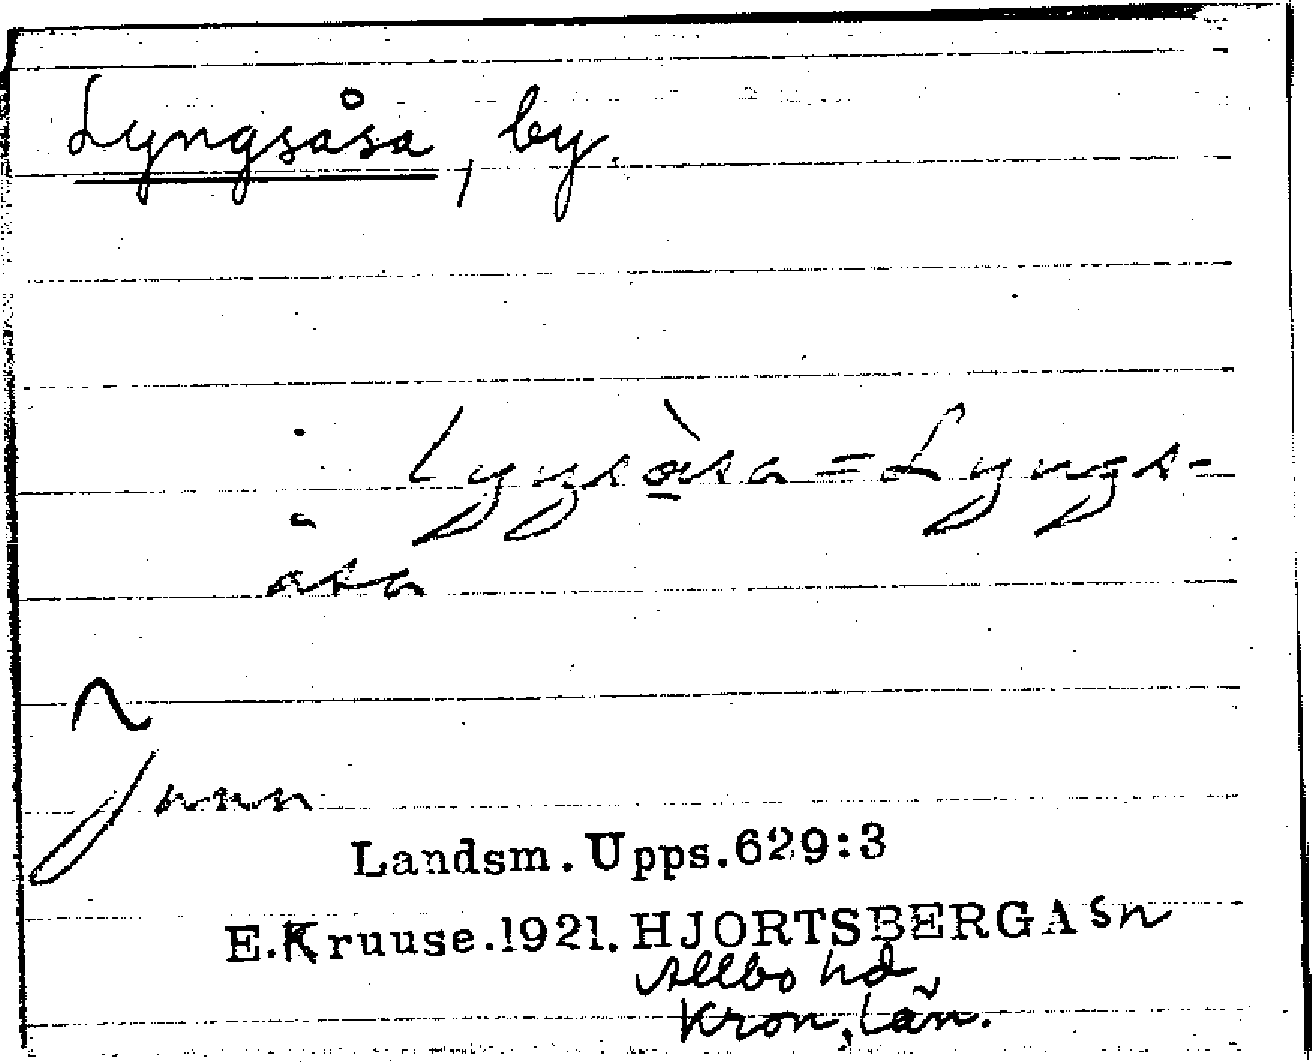 Lyngsåsa, by.
Lyŋsɑ̀sa = Lyngs-
åsa
Landsm. Upps. 629:3
E. Kruuse. 1921. HJORTSBERGA sn
Allbo hd
Kron. län.